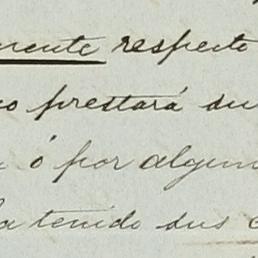 mente respecto
o prestará su
ó por algun
ha tenido sus